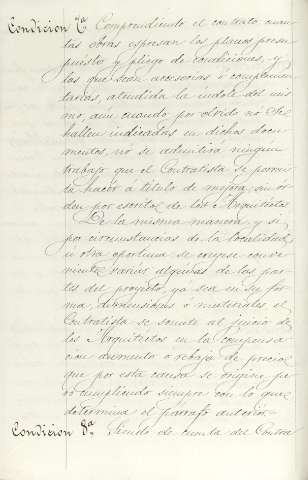 Condicion 7ª Comprendiendo el contrato cuan-
tas obras espresan los planos presu-
puestos y pliego de condiciones, y
los que sean accesorias ó complemen-
tarias, atendida la indole del mis-
mo, aun cuando por olvido no se
hallen indicadas en dichos docu-
mentos, no se admitirá ningun
trabajo que el Contratista se permi-
ta hacer á titulo de mejora, sin ór-
den por escrito de los Arquitectos
De la misma manera, y si
por circunstancias de la localidad,
u otra oportuna se creyese conve-
niente variar algunas de las par-
tes del proyecto, ya sea en su for-
ma, dimensiones ó materiales el
Contratista se somete al juicio de
los Arquitectos en la compensa-
cion aumento ó rebaja de precios
que por esta causa se origine, pe-
ro cumpliendo siempre con lo que
determina el párrafo anterior.
Condicion 8ª Siendo de cuenta del Contra